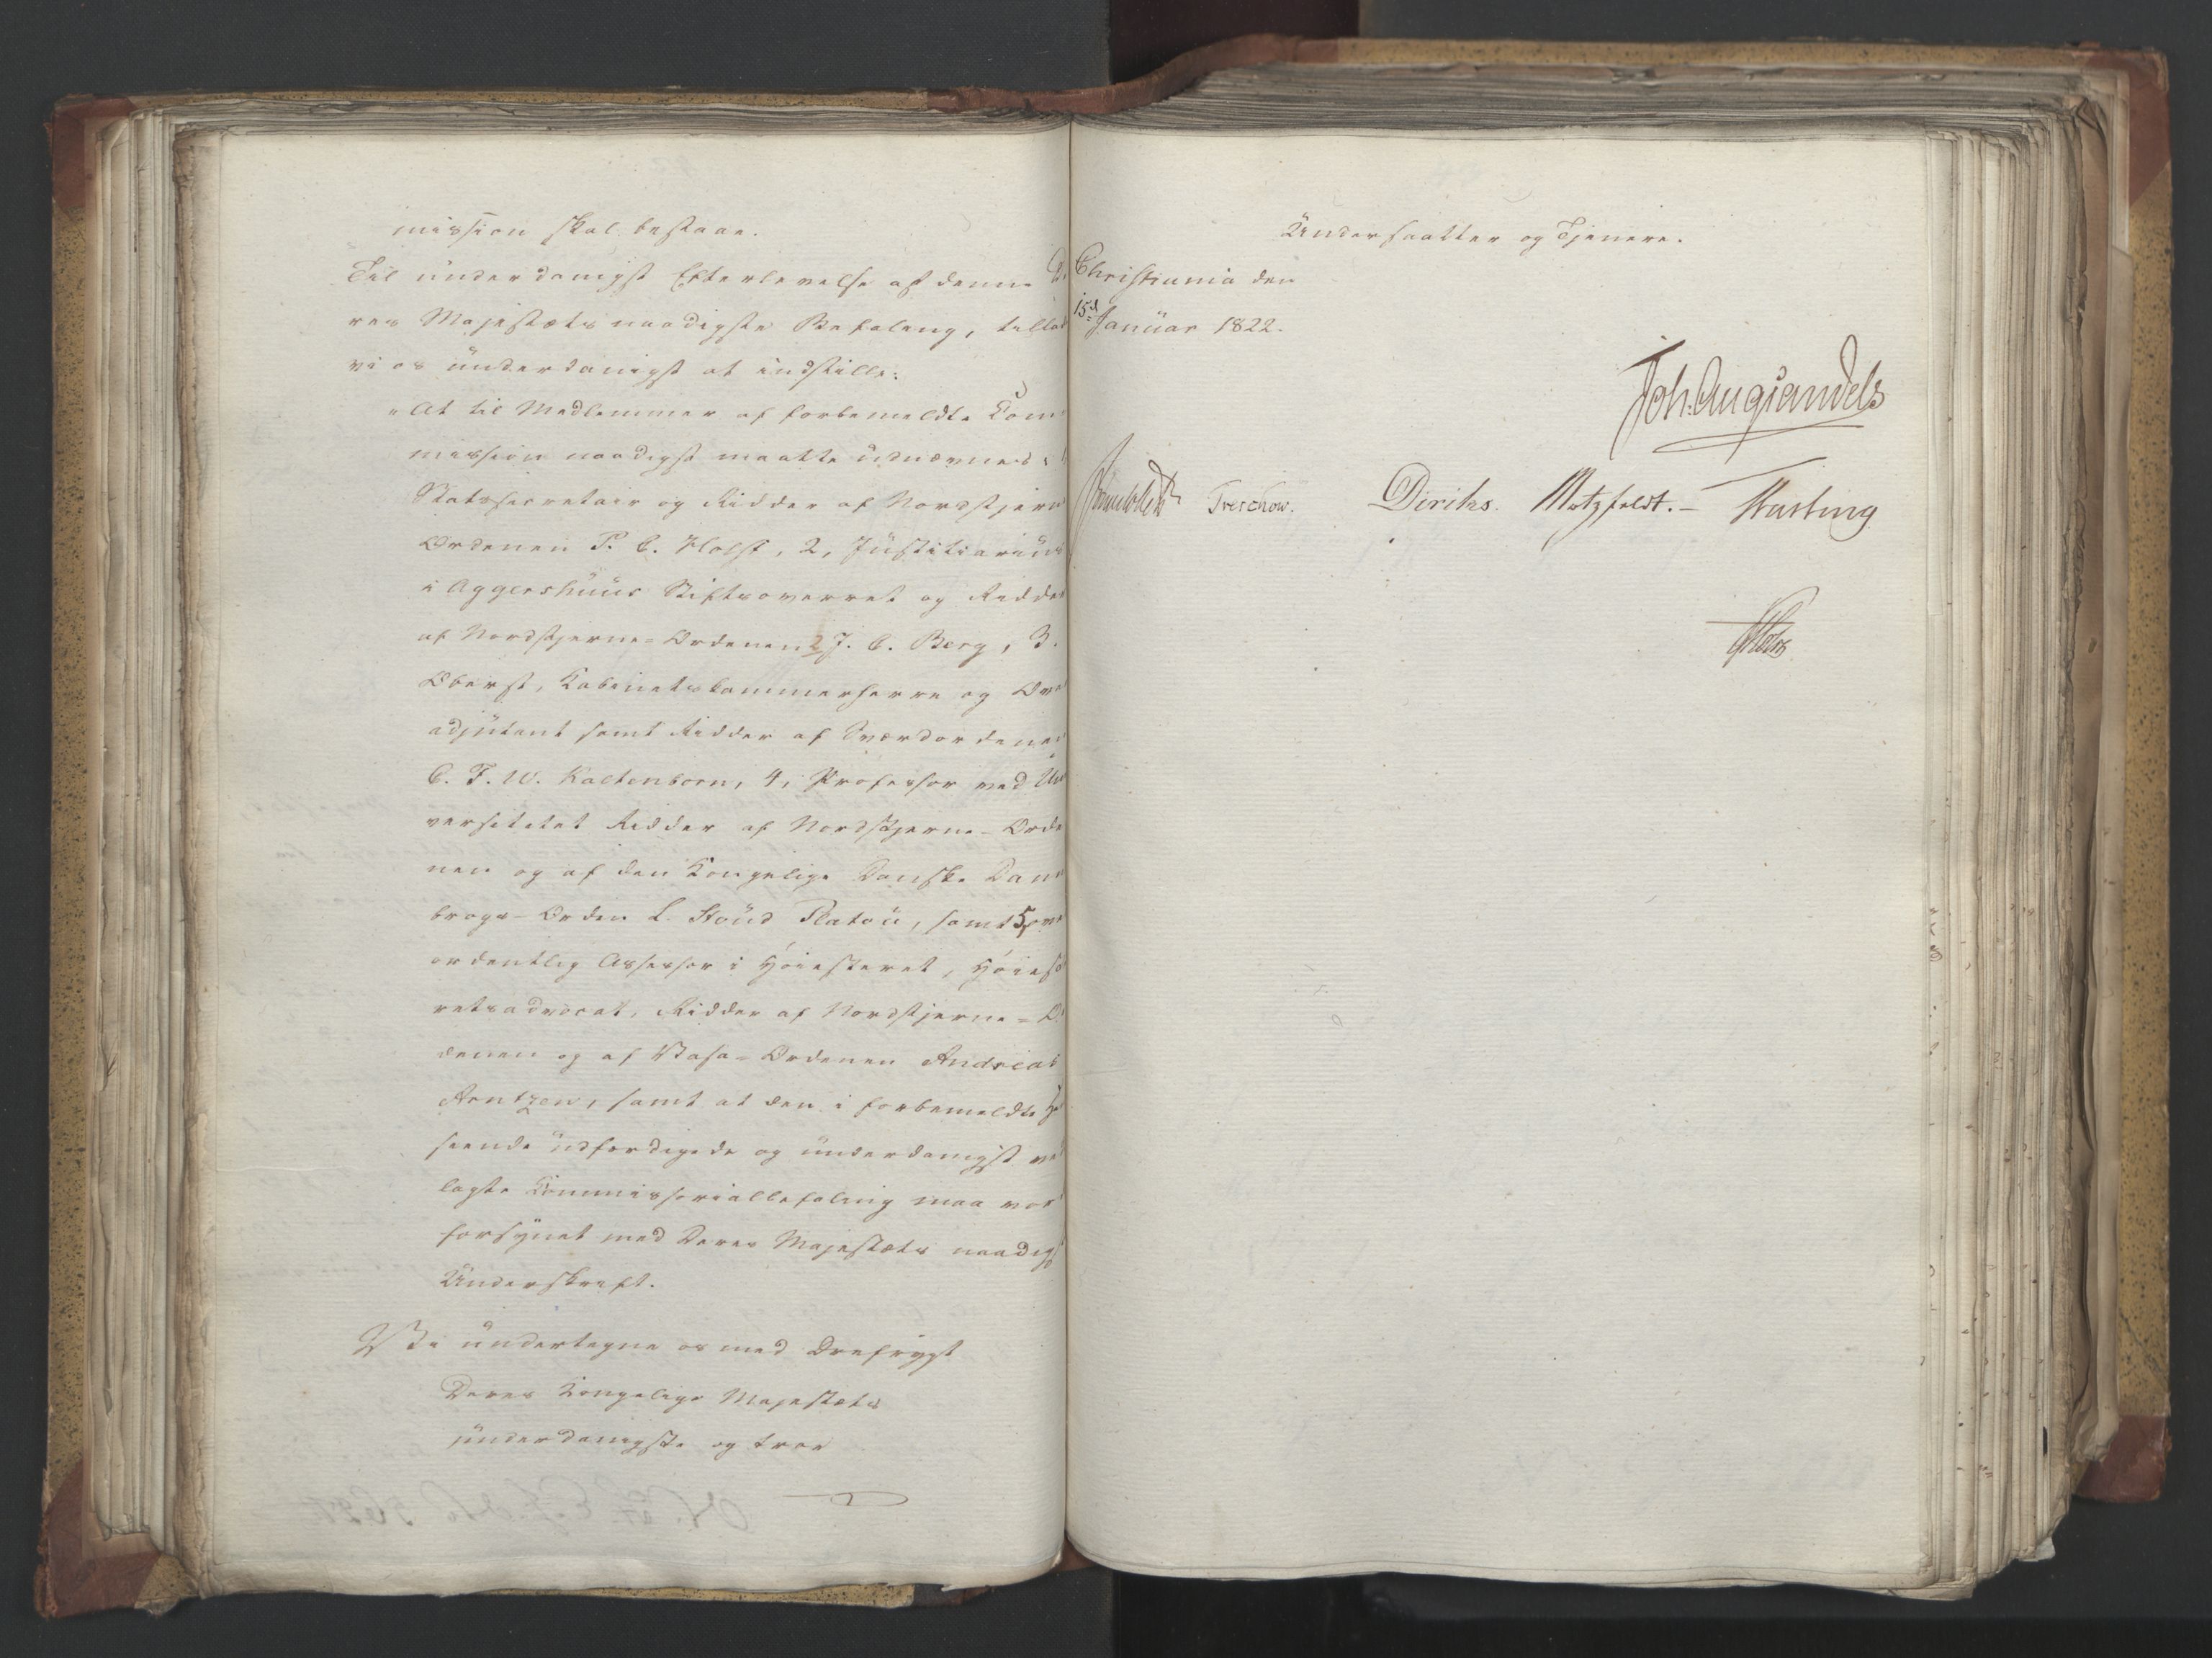 mission skal bestaae.
Til underdanigst Efterlevelse af denne De
res Majestæts naadigste Befaling, tillade
vi os underdanigst at indstille:
"At til Medlemmer af forbemeldte Com
mission naadigst maatte udnævnes: 1,
Statssecretair og Ridder af Nordstjerne
Ordenen P. C. Holst, 2, Justitiarius
i Aggershuus Stiftsoverret og Ridder
af Nordstjerne-Ordenen J. C. Berg, 3.
Oberst, Kabinetskammerherre og Over
adjutant samt Ridder af Sværdordenen
C. F. W. Kaltenborn, 4, Professor ved Uni
versitetet Ridder af Nordstjerne-Orde
nen og af den Kongelige Danske Dane
brogs-Orden L. Stoud Platou, samt 5,
ordentlig Assessor i Høiesteret, Høieste
retsadvocat, Ridder af Nordstjerne-Or
denen og af Vasa-Ordenen Andreas
Arntzen, samt at den i forbemeldte Hen
seende udfærdigede og underdanigst ved
lagte Commissorialbefaling maa vorde
forsynet med Deres Majestæts naadigste
Underskrift.
Vi undertegne os med Ærefrygt
Deres Kongelige Majestæts
underdanigste og troe
Undersaatter og Tjenere.
Christiania den
15d Januar 1822.
Joh: Aug Sandels
Sommerhielm Treschow. Diriks. Motzfeldt. - Fasting
Holst